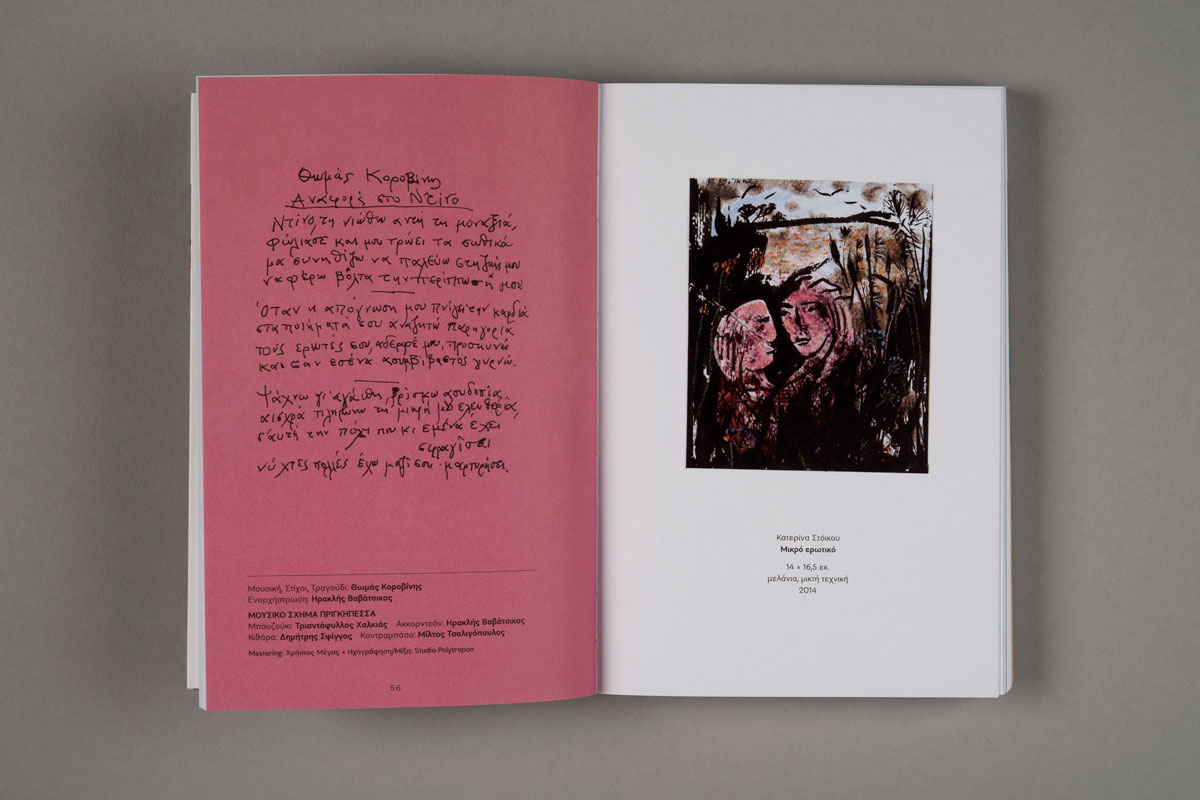 Θωμάς Κοροβίνης
Αναφορά στο Ντίνο
Ντίνο, τη νιώθω αυτή τη μοναξιά,
φώλιασε και μου τρώει τα σωθικά
μα συνηθίζω να παλεύω στη ζωή μου
να φέρω βόλτα την περίπτωσή μου
Όταν η απόγνωση μου πνίγει την καρδιά
στα ποιήματά σου αναζητώ παρηγοριά
τους έρωτές σου, αδερφέ μου, προσκυνώ
και σαν εσένα ασυμβίβαστος γυρνώ.
Ψάχνω γι' αγάπη, βρίσκω ασυδοσία
αισχρά πληρώνω τη μικρή μου ελευθερία,
σ' αυτή την πόλη που κι εμένα έχει
σφραγίσει
νύχτες πολλές έχω μαζί σου μαρτυρήσει.
Μουσική, Στίχοι, Τραγούδι: Θωμάς Κοροβίνης
Ενορχήστρωση: Ηρακλής Βαβάτσικας
ΜΟΥΣΙΚΟ ΣΧΗΜΑ ΠΡΙΓΚΗΠΕΣΣΑ
Μπουζούκι: Τριαντάφυλλος Χαλκιάς Ακκορντεόν: Ηρακλής Βαβάτσικας
Κιθάρα: Δημήτρης Σφίγγος Κοντραμπάσο: Μίλτος Τσαλιγόπουλος
Mastering: Χρήστος Μέγας • Ηχογράφηση/Μίξη: Studio Polytropon
56
Κατερίνα Στόικου
Μικρό ερωτικό
14 × 16,5 εκ.
μελάνια, μικτή τεχνική
2014